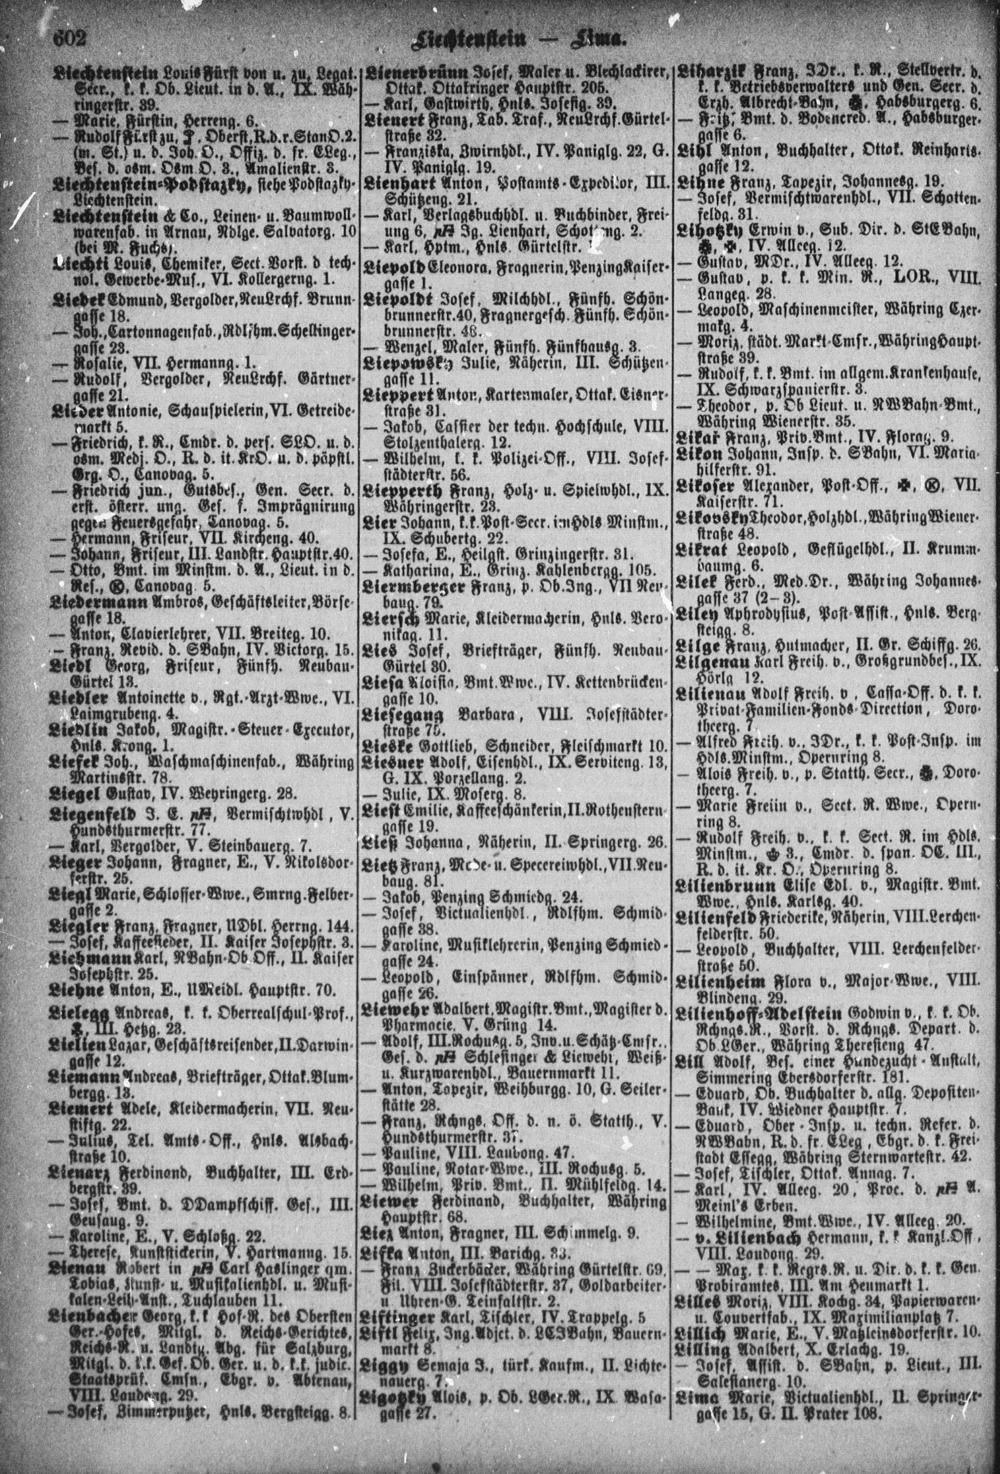 602
Liechtenstein — Lima.
Liechtenstein Louis Fürst von u. zu, Legat.
Secr., k. k. Ob. Lieut. in d. A., IX. Wäh-
ringerstr. 39.
— Marie, Fürstin, Herreng. 6.
— Rudolf Fürst zu, Oberst, R.d.r.StanO.2.
(m. St.) u. d. Joh. O., Offiz. d. fr. ELeg.,
Bes. d. osm. Osm O. 3., Amalienstr. 3.
Liechtenstein-Podstazky, siehe Podstazky-
Liechtenstein.
Liechtenstein & Co., Leinen- u. Baumwoll-
warenfab. in Arnau, Ndlge. Salvatorg. 10
(bei M. Fuchs).
Liechti Louis, Chemiker, Sect. Vorst. d tech-
nol. Gewerbe-Mus., VI. Kollergerng. 1.
Liedek Edmund, Vergolder, NeuLrchf. Brunn-
gasse 18.
— Joh., Cartonnagenfab., Rdlfhm. Schellinger-
gasse 23.
— Rosalie, VII. Hermanng. 1.
— Rudolf, Vergolder, NeuLrchf. Gärtner-
gasse 21.
Lieder Antonie, Schauspielerin, VI. Getreide-
markt 5.
— Friedrich, k. R., Cmdr. d. pers. SLO. u. d.
osm. Medj. O., R. d. it. KrO. u. d. päpstl.
Grg. O., Canovag. 5.
— Friedrich jun., Gutsbes., Gen. Secr. d.
erst. österr. ung. Ges. f. Imprägnirung
gegen Feuersgefahr, Canovag. 5.
— Hermann, Friseur, VII. Kircheng. 40.
— Johann, Friseur, III. Landstr. Hauptstr. 40.
— Otto, Bmt. im Minstm. d. A., Lieut. in d.
Res., Canovag. 5.
Liedermann Ambros, Geschäftsleiter, Börse-
gasse 18.
— Anton, Clavierlehrer, VII. Breiteg. 10.
— Franz, Revid. d. SBahn, IV. Victorg. 15.
Liedl Georg, Friseur, Fünfh. Neubau-
Gürtel 13.
Liedler Antoinette v., Rgt.-Arzt-Wwe., VI.
Laimgrubeng. 4.
Liedlin Jakob, Magistr.-Steuer-Executor,
Hnls. Krong. 1.
Liefek Joh., Waschmaschinenfab., Währing
Martinsstr. 78.
Liegel Gustav, IV. Weyringerg. 28.
Liegenfeld J. E., Vermischtwhdl, V.
Hundsthurmerstr. 77.
— Karl, Vergolder, V. Steinbauerg. 7.
Lieger Johann, Fragner, E., V. Nikolsdor-
ferstr. 25.
Liegl Marie, Schlosser-Wwe., Smrng. Felber-
gasse 2.
Liegler Franz, Fragner, UDbl. Herrng. 144.
— Josef, Kaffeesieder, II. Kaiser Josephstr. 3.
Liehmann Karl, NBahn-Ob Off., II. Kaiser
Josephstr. 25.
Liehne Anton, E., UMeidl. Hauptstr. 70.
Lielegg Andreas, k. k. Oberrealschul-Prof.,
III. Hetzg. 23.
Lielien Lazar, Geschäftsreisender, II. Darwin-
gasse 12.
Liemann Andreas, Briefträger, Ottak. Blum-
bergg. 13.
Liemert Adele, Kleidermacherin, VII. Neu-
stiftg. 22.
— Julius, Tel. Amts-Off., Hnls. Alsbach-
straße 10.
Lienarz Ferdinand, Buchhalter, III. Erd-
bergstr. 39.
— Josef, Bmt. d. DDampfschiff. Ges., III.
Geusaug. 9.
— Karoline, E., V. Schloßg. 22.
— Therese, Kunststickerin, V. Hartmanng. 15.
Lienau Robert in Carl Haslinger qm.
Tobias, Kunst- u. Musikalienhdl. u. Musi-
kalen-Leih-Anst., Tuchlauben 11.
Lienbacher Georg, k.k Hof-R. des Obersten
Ger.-Hofes, Mitgl. d. Reichs-Gerichtes,
Reichs-R. u. Landtg. Abg. für Salzburg,
Mitgl. d. k.k. Gef. Ob. Ger. u. d. k.k. judic.
Staatsprüf. Cmsn., Ebgr. v. Abtenau,
VIII. Laudong. 29.
— Josef, Zimmerputzer, Hnls. Bergsteigg. 8.
Lienerbrünn Josef, Maler u. Blechlackirer,
Ottak. Ottakringer Hauptstr. 205.
— Karl, Gastwirth, Hnls. Josefig. 39.
Lienert Franz, Tab. Traf., NeuLrchf. Gürtel-
straße 32.
— Franziska, Zwirnhdl., IV. Paniglg. 22, G.
IV. Paniglg. 19.
Lienhart Anton, Postamts-Expeditor, III.
Schützeng. 21.
— Karl, Verlagsbuchhdl. u. Buchbinder, Frei-
ung 6, Ig. Lienhart, Schotteng. 2.
— Karl, Hptm., Hnls. Gürtelstr.
Liepold Eleonora, Fragnerin, Penzing Kaiser-
gasse 1.
Liepoldt Josef, Milchhdl., Fünfh. Schön-
brunnerstr. 40, Fragnergesch. Fünfh. Schön-
brunnerstr. 48.
— Wenzel, Maler, Fünfh. Fünfhausg. 3.
Liepowsky Julie, Näherin, III. Schützen-
gasse 11.
Lieppert Anton, Kartenmaler, Ottak. Eisner-
straße 31.
— Jakob, Cassier der techn. Hochschule, VIII.
Stolzenthalerg. 12.
— Wilhelm, k. k. Polizei-Off., VIII. Josef-
städterstr. 56.
Liepperth Franz, Holz- u. Spielwhdl., IX.
Währingerstr. 23.
Lier Johann, k.k. Post-Secr. im Hdls Minstm.,
IX. Schubertg. 22.
— Josefa, E., Heilgst. Grinzingerstr. 31.
— Katharina, E., Grinz. Kahlenbergg. 105.
Liermberger Franz, p. Ob. Ing., VII Neu-
baug. 79.
Liersch Marie, Kleidermacherin, Hnls. Vero-
nikag. 11.
Lies Josef, Briefträger, Fünfh. Neubau-
Gürtel 30.
Liesa Aloisia, Bmt. Wwe., IV. Kettenbrücken-
gasse 10.
Liesegang Barbara, VIII. Josefstädter-
straße 75.
Lieske Gottlieb, Schneider, Fleischmarkt 10.
Liesner Adolf, Eisenhdl., IX. Serviteng. 13,
G. IX. Porzellang. 2.
— Julie, IX. Moserg. 8.
Liest Emilie, Kaffeeschänkerin, II. Rothenstern-
gasse 19.
Ließ Johanna, Näherin, II. Springerg. 26.
Lietz Franz, Mode- u. Specereiwhdl., VII. Neu-
baug. 81.
— Jakob, Penzing Schmiedg. 24.
— Josef, Victualienhdl., Rdlfhm. Schmid-
gasse 38.
— Karoline, Musiklehrerin, Penzing Schmied-
gasse 24.
— Leopold, Einspänner, Rdlfhm. Schmid-
gasse 26.
Liewehr Adalbert, Magistr. Bmt., Magister d.
Pharmacie, V. Grüng 14.
— Adolf, III. Rochusg. 5, Inv. u. Schätz-Cmfr.,
Ges. d. Schlesinger & Liewehr, Weiß-
u. Kurzwarenhdl., Bauernmarkt 11.
— Anton, Tapezir, Weihburgg. 10, G. Seiler-
stätte 28.
— Franz, Rchngs. Off. d. n. ö. Statth., V.
Hundsthurmerstr. 37.
— Pauline, VIII. Laudong. 47.
— Pauline, Notar-Wwe., III. Rochusg. 5.
— Wilhelm, Priv. Bmt., II. Mühlfeldg. 14.
Liewer Ferdinand, Buchhalter, Währing
Hauptstr. 68.
Liez Anton, Fragner, III. Schimmelg. 9.
Lifka Anton, III. Barichg. 33.
— Franz Zuckerbäcker, Währing Gürtelstr. 69,
Fil. VIII. Josefstädterstr. 37, Goldarbeiter-
u Uhren-G. Teinfaltstr. 2.
Liftinger Karl, Tischler, IV. Trappelg. 5
Liftl Felix, Ing. Adjct. d. LCJBahn, Bauern-
markt 8.
Liggy Semaja J., türk. Kaufm., II. Lichte-
nauerg. 7.
Ligotzky Alois, p. Ob. LGer. R., IX. Wasa-
gasse 27.
Liharzik Franz, JDr., k. R., Stellvertr. d.
k. k. Betriebsverwalters und Gen. Secr. d.
Erzh. Albrecht-Bahn, Habsburgerg. 6.
— Fritz, Bmt. d. Bodencred. A., Habsburger-
gasse 6.
Lihl Anton, Buchhalter, Ottak. Reinharts-
gasse 12.
Lihne Franz, Tapezir, Johannesg. 19.
— Josef, Vermischtwarenhdl., VII. Schotten-
feldg. 31.
Lihotzky Erwin v., Sub. Dir. d. StEBahn,
IV. Alleeg. 12.
— Gustav, MDr., IV. Alleeg. 12.
— Gustav, p. k. k. Min. R., LOR., VIII.
Langeg. 28.
— Leopold, Maschinenmeister, Währing Czer-
makg. 4.
— Moriz, städt. Markt-Cmsr., Währing Haupt-
straße 39.
— Rudolf, k. k. Bmt. im allgem. Krankenhause,
IX. Schwarzspanierstr. 3.
— Theodor, p. Ob Lieut. u. NWBahn-Bmt.,
Währing Wienerstr. 35.
Likar Franz, Priv. Bmt., IV. Florag. 9.
Likon Johann, Insp. d. SBahn, VI. Maria-
hilferstr. 91.
Likoser Alexander, Post-Off., VII.
Kaiserstr. 71.
Likovsky Theodor, Holzhdl., Währing Wiener-
straße 48.
Likrat Leopold, Geflügelhdl., II. Krumm-
baumg. 6.
Lilek Ferd., Med. Dr., Währing Johannes-
gasse 37 (2—3).
Liley Aphrodysius, Post-Assist., Hnls. Berg-
steigg. 8.
Lilge Franz, Hutmacher, II. Gr. Schiffg. 26.
Lilgenau Karl Freih. v., Großgrundbes., IX.
Hörlg 12.
Lilienau Adolf Freih. v, Cassa-Off. d. k. k.
Privat-Familien-Fonds-Direction, Doro-
theerg. 7.
— Alfred Freih. v., JDr., k. k. Post-Insp. im
Hdls. Minstm., Opernring 8.
— Alois Freih. v., p. Statth. Secr., Doro-
theerg. 7.
— Marie Freiin v., Sect. R. Wwe., Opern-
ring 8.
— Rudolf Freih. v., k. k. Sect. R. im Hdls.
Minstm., 3., Cmdr. d. span. OC. III.,
R. d. it. Kr. O., Opernring 8.
Lilienbrunn Elise Edl. v., Magistr. Bmt.
Wwe., Hnls. Karlsg. 40.
Lilienfeld Friederike, Näherin, VIII. Lerchen-
felderstr. 50.
— Leopold, Buchhalter, VIII. Lerchenfelder-
straße 50.
Lilienheim Flora v., Major-Wwe., VIII.
Blindeng. 29.
Lilienhoff-Adelstein Godwin v., k. k. Ob.
Rchngs. R., Vorst. d. Rchngs. Depart. d.
Ob. LGer., Währing Theresieng 47.
Lill Adolf, Bes. einer Hundezucht-Anstalt,
Simmering Ebersdorferstr. 181.
— Eduard, Ob. Buchhalter d. allg. Depositen-
Bank, IV. Wiedner Hauptstr. 7.
— Eduard, Ober-Insp. u. techn. Refer. d.
NWBahn, R. d. fr. ELeg, Ebgr. d. k. Frei-
stadt Essegg, Währing Sternwartestr. 42.
— Josef, Tischler, Ottak. Annag. 7.
— Karl, IV. Alleeg. 20, Proc. d. A.
Meinl's Erben.
— Wilhelmine, Bmt. Wwe., IV. Alleeg. 20.
— v. Lilienbach Hermann, k. k Kanzl. Off.,
VIII. Laudong. 29.
— — Max, k. k. Regrs. R. u. Dir. d. k. k. Gen.
Probiramtes, III. Am Heumarkt 1.
Lilles Moriz, VIII. Kochg. 34, Papierwaren-
u. Couvertfab., IX. Maximilianplatz 7.
Lillich Marie, E., V. Matzleinsdorferstr. 10.
Lilling Adalbert, X. Erlachg. 19.
— Josef, Assist. d. SBahn, p. Lieut., III.
Salesianerg. 10.
Lima Marie, Victualienhdl., II. Springer-
gasse 15, G. II. Prater 108.